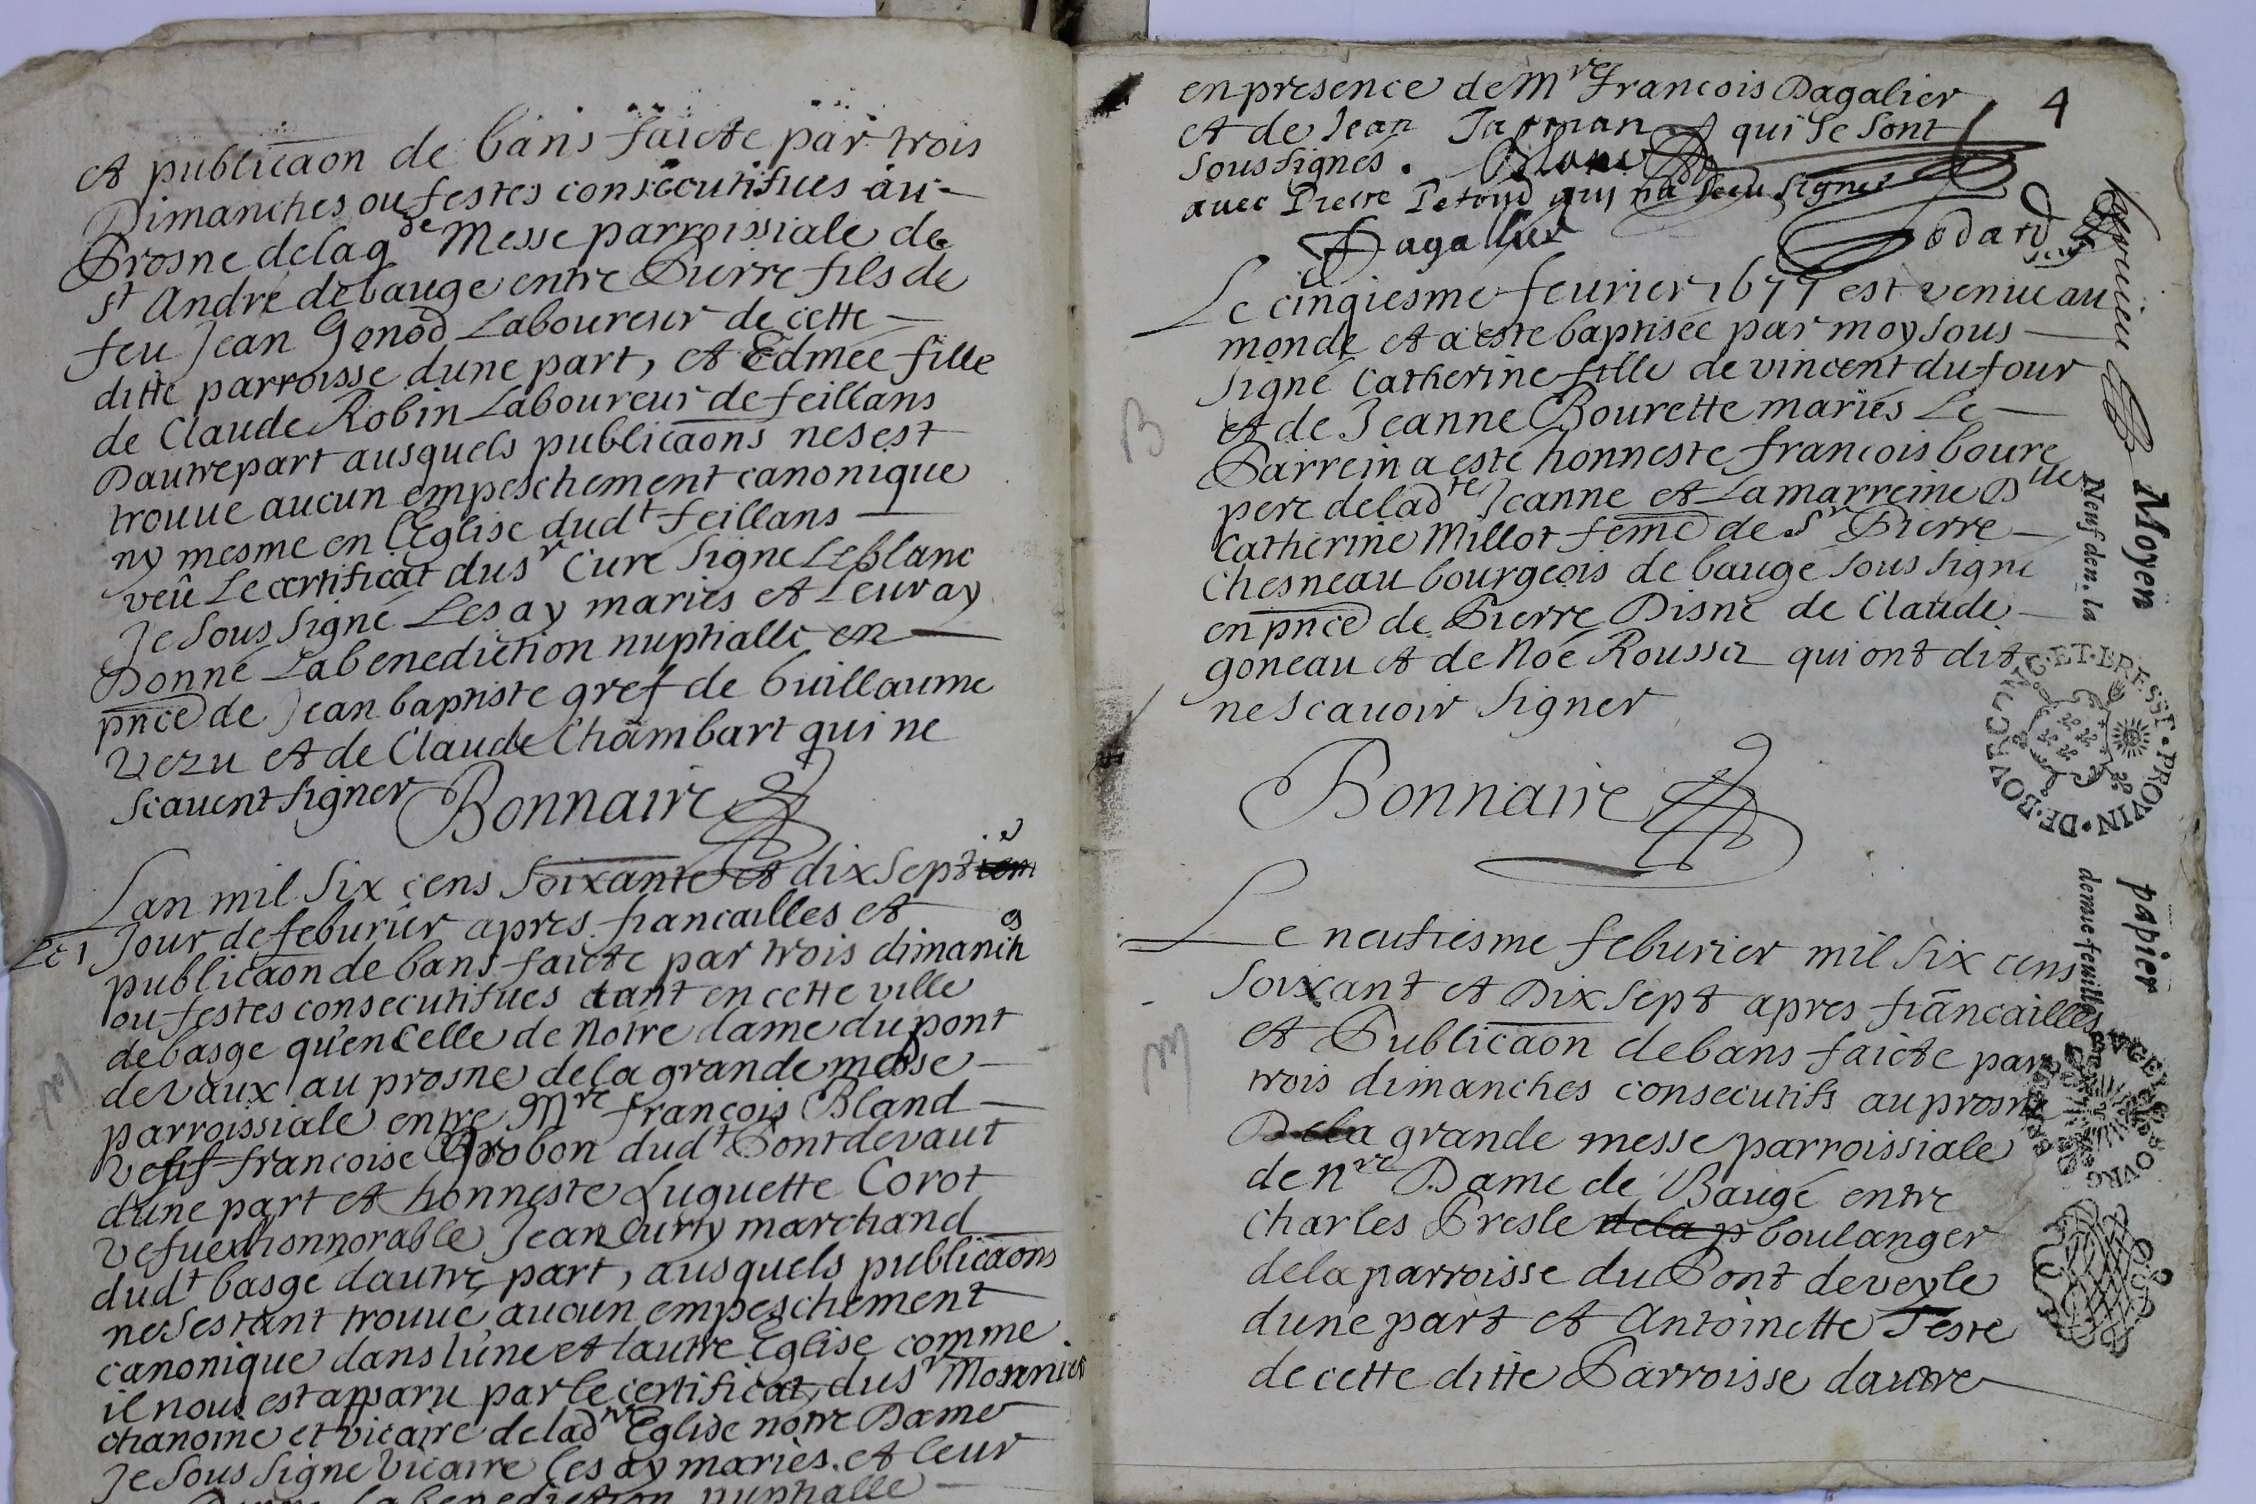 et publicaon de bans faicte par trois
Dimanches ou festes consecutifues au
Prosne de la gde Messe parroissiale de
st André de baugé entre Pierre fils de
feu Jean Gonod Laboureur de cette
ditte parroisse dune part, et Edmée fille
de Claude Robin Laboureur de feillans
Dautrepart ausquels publicaons nesest
trouue aucun empeschement canonique
ny mesme en l'Eglise dudt feillans
veû Le certificat du sr Curé Signé Leblanc
Je Soussigné Les ay mariés et Leur ay
Donné La benediction nuptialle en
pnce de Jean baptiste gref de Guillaume
Vezu et de Claude Chambart qui ne
scauent signer Bonnaire
Lan mil Six cens Soixante et dix sept
Le 1 Jour de feburier apres fiancailles et
publicaon de bans faicte par trois dimanches
ou festes consecutifues tant en cette ville
de basgé qu'en Celle de Notre dame du pont
de vaux au prosne de la grande messe
parroissiale entre Mre françois Bland
vefuf francoise Brobon dudt Pontdevaut
dune part et honneste Luguette Corot
vefue dhonnorable Jean Curty marchand
dudt basgé dautre part, ausquels publicaons
ne Sestant trouué aucun empeschement
canonique dans lune et lautre Eglise comme
il nous est apparu par le certificat du sr Monnier
chanoine et vicaire de ladre Eglise notre Dame
Je Soussigné Vicaire les ay mariés et leur
la benediction nuptialle
4
en presence de Mre francois Dagalier
et de Jean Tarman qui se Sont
soussignés.
auec Pierre Petond qui na sceu signer
Dagallier
Le cinqiesme feurier 1677 est venue au
monde et a esté baptisée par moy sous
signé Catherine fille de vincent dufour
B et de Jeanne Bourette mariés Le
Parrein a esté honneste francois boure
pere de ladre Jeanne et La marreine Dlle
Catherine Millot feme de Sr Pierre
Chesneau bourgeois de baugé sous signé
en pnce de Pierre Disne de Claude
goneau et de Noé Roussez qui ont dit
ne scauoir signer
Bonnaire
Le neufiesme feburier mil six cens
soixant et Dix sept apres fiancailles
M et Publicaon de bans faicte par
trois dimanches consecutifs au prosne
De la grande messe parroissiale
de nre Dame de Baugé entre
Charles Presle de la p boulanger
de la parroisse du Pont deveyle
dune part et Antoinette Teste
de cette ditte Parroisse dautre
Moyen papier
Neuf den. la demie feuille
G.ET.BRESSE.PROVIN.DE.BOVRGO